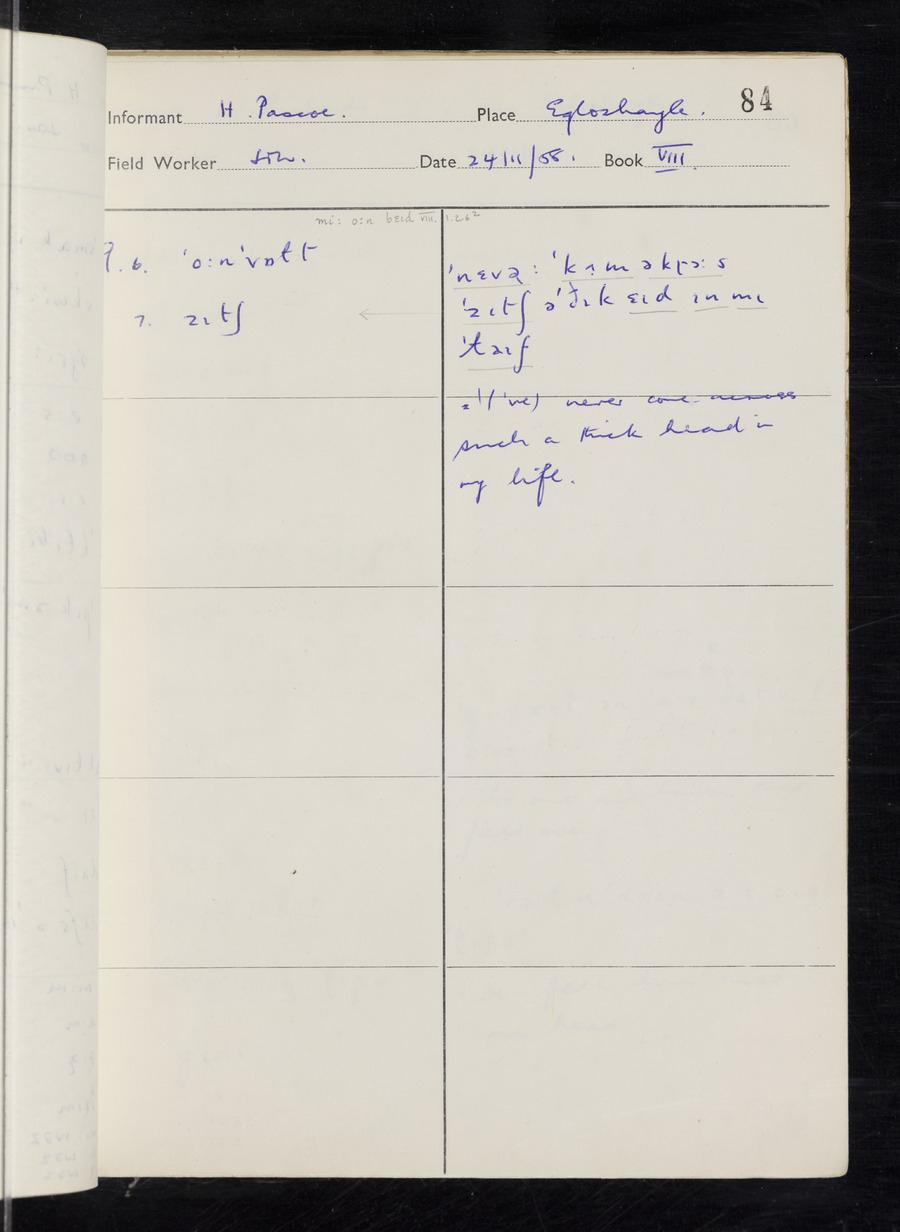 84
Informant H. Pascoe. Place Egloshayle.
Field Worker Date 24/11/58. Book VIII.
mi: o:n bɛɪd VIII. 1.26²
9.6. ˈo:nˈvɒɫt
7. zɪtʃ
ˈnɛvə: ˈkɪm əkɽɔ:s
ˈzɪtʃ əˈðɪk ɛɪd ɪn mɪ
ˈtəɪf
= I ('ve) never come across
such a thick head in
my life.